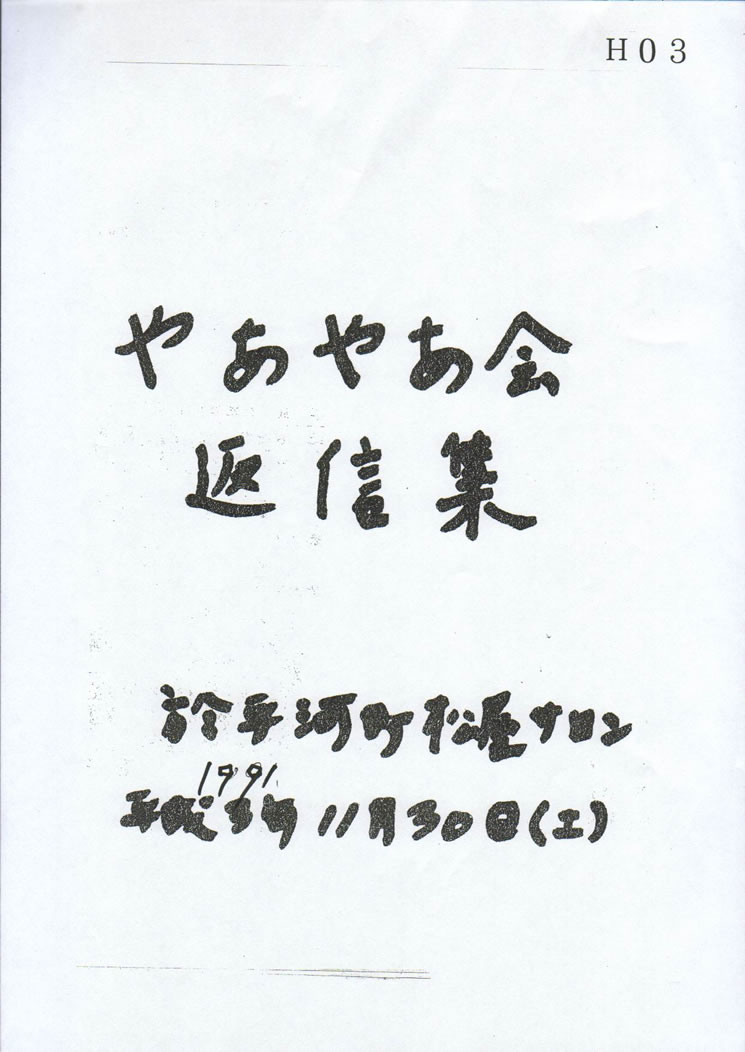 H03
やあやあ会
返信集
於平河町松屋サロン
1991
平成3年11月30日(土)